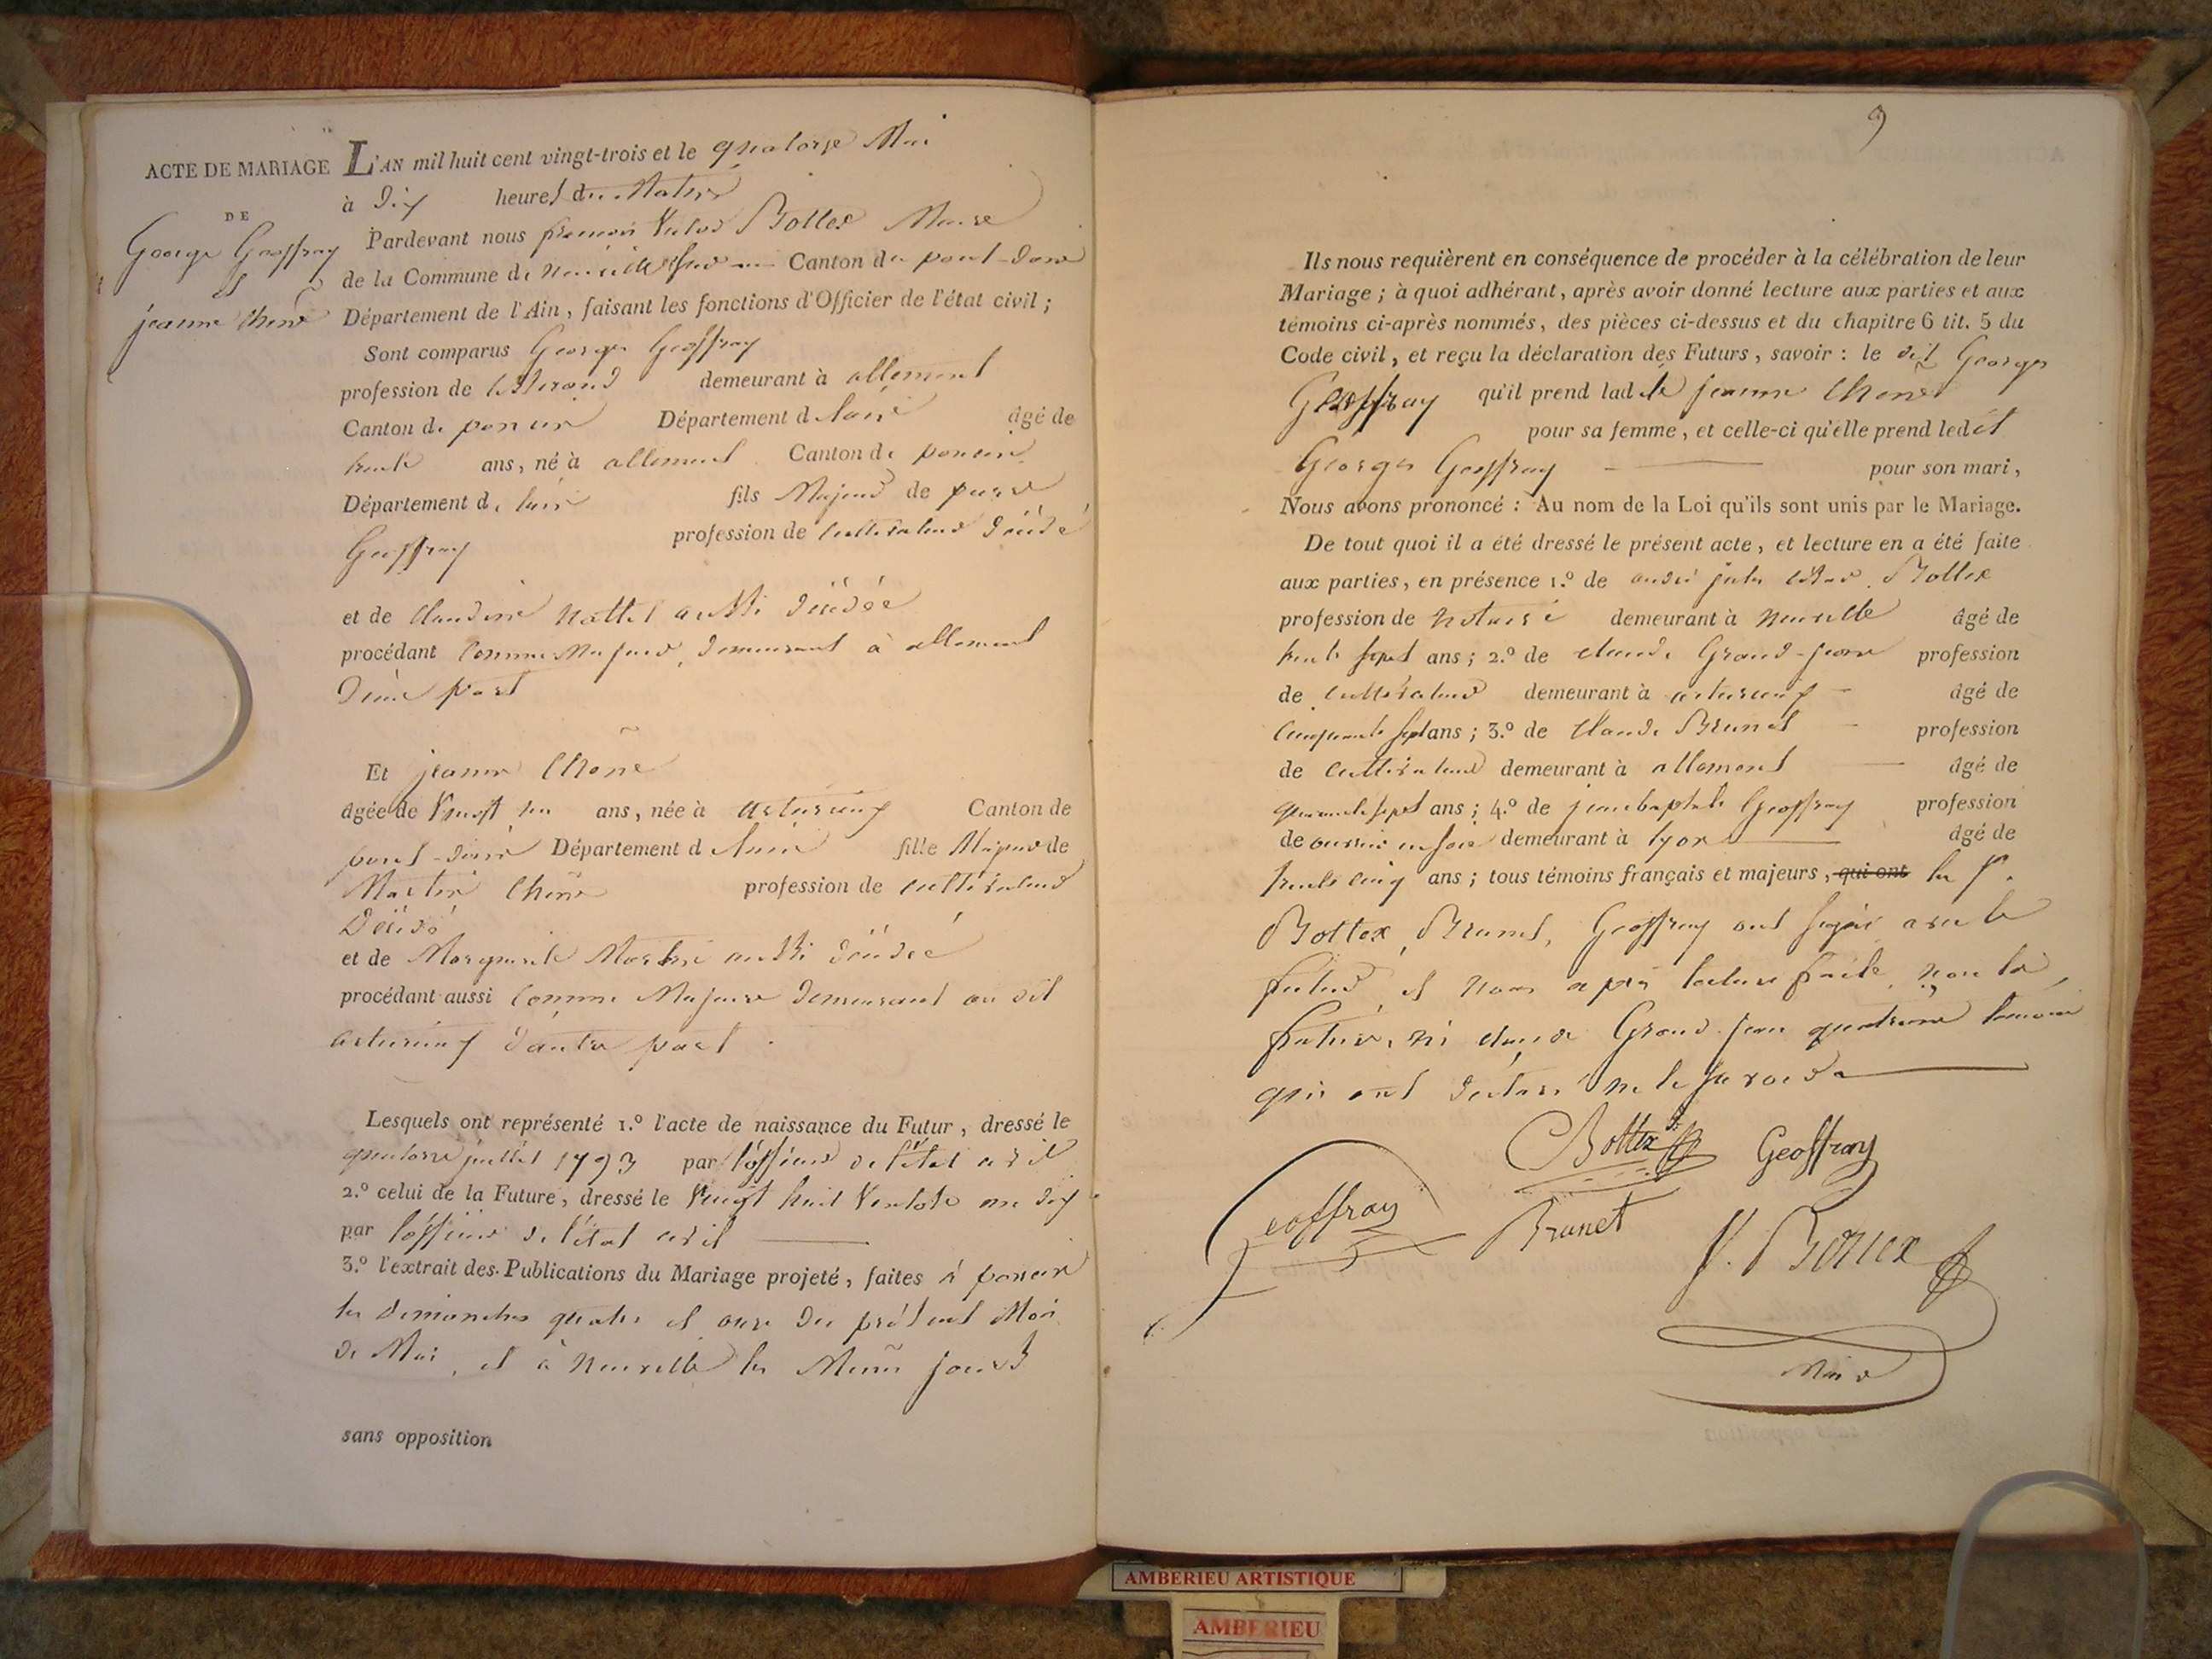 ACTE DE MARIAGE
DE
George Geoffray
et
jeanne Chene
L'AN mil huit cent vingt-trois et le quatorze Mai
à dix heures du Matin
Pardevant nous Victor Bottex Maire
de la Commune de neuville sur ain Canton de pont-dain
Département de l'Ain, faisant les fonctions d'Officier de l'état civil ;
Sont comparus George Geoffray
profession de tisserand demeurant à allement
Canton de poncin Département de lain âgé de
trente ans, né à allement Canton de poncin
Département de lain fils Majeur de
Geoffray profession de Cultivateur décédé
et de Claudine aussi décédée
procédant comme Majeur, demeurant à allement
d'une part
Et jeanne Chene
âgée de Vingt un ans, née à Canton de
pont-dain Département de lain fille Majeure de
Martin Chene profession de cultivateur
Décédé
et de Marguerite aussi décédée
procédant aussi comme Majeure demeurant au dit
d'autre part
Lesquels ont représenté 1.º l'acte de naissance du Futur, dressé le
quatorze juillet 1793 par l'officier de l'état civil
2.º celui de la Future, dressé le Vingt huit Ventose an dix
par l'officier de l'état civil
3.º l'extrait des Publications du Mariage projeté, faites à poncin
les dimanches quatre et onze du présent Mois
de Mai, et à neuville les Memes jours
sans opposition
9
Ils nous requièrent en conséquence de procéder à la célébration de leur
Mariage ; à quoi adhérant, après avoir donné lecture aux parties et aux
témoins ci-après nommés, des pièces ci-dessus et du chapitre 6 tit. 5 du
Code civil, et reçu la déclaration des Futurs, savoir : le dit George
Geoffray qu'il prend lad te jeanne Chene
pour sa femme, et celle-ci qu'elle prend ledit
George Geoffray pour son mari,
Nous avons prononcé : Au nom de la Loi qu'ils sont unis par le Mariage.
De tout quoi il a été dressé le présent acte, et lecture en a été faite
aux parties, en présence 1.º de andré Bottex
profession de notaire demeurant à neuville âgé de
trente sept ans ; 2.º de claude Grand-jean profession
de cultivateur demeurant à âgé de
Cinquante sept ans ; 3.º de Claude Brunet profession
de cultivateur demeurant à allement âgé de
quarante sept ans ; 4.º de jean baptiste Geoffray profession
de ouvrier en soie demeurant à lyon âgé de
trente cinq ans ; tous témoins français et majeurs, qui ont les Sr.
Bottex, Brunet, Geoffray ont signé avec le
futur et nous après lecture faite, non la
future, ni claude Grand-jean témoin
qui ont déclaré ne le savoir
Bottex Geoffray
Geoffray Brunet
V. Bottex
Maire
AMBERIEU ARTISTIQUE
AMBERIEU